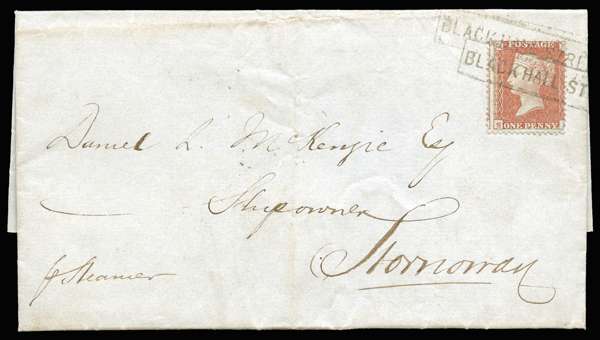 BLACKHALL
BLACKHALL ST
POSTAGE
ONE PENNY
Daniel L. McKenzie Esq
Shipowner
Stornoway
p Steamer